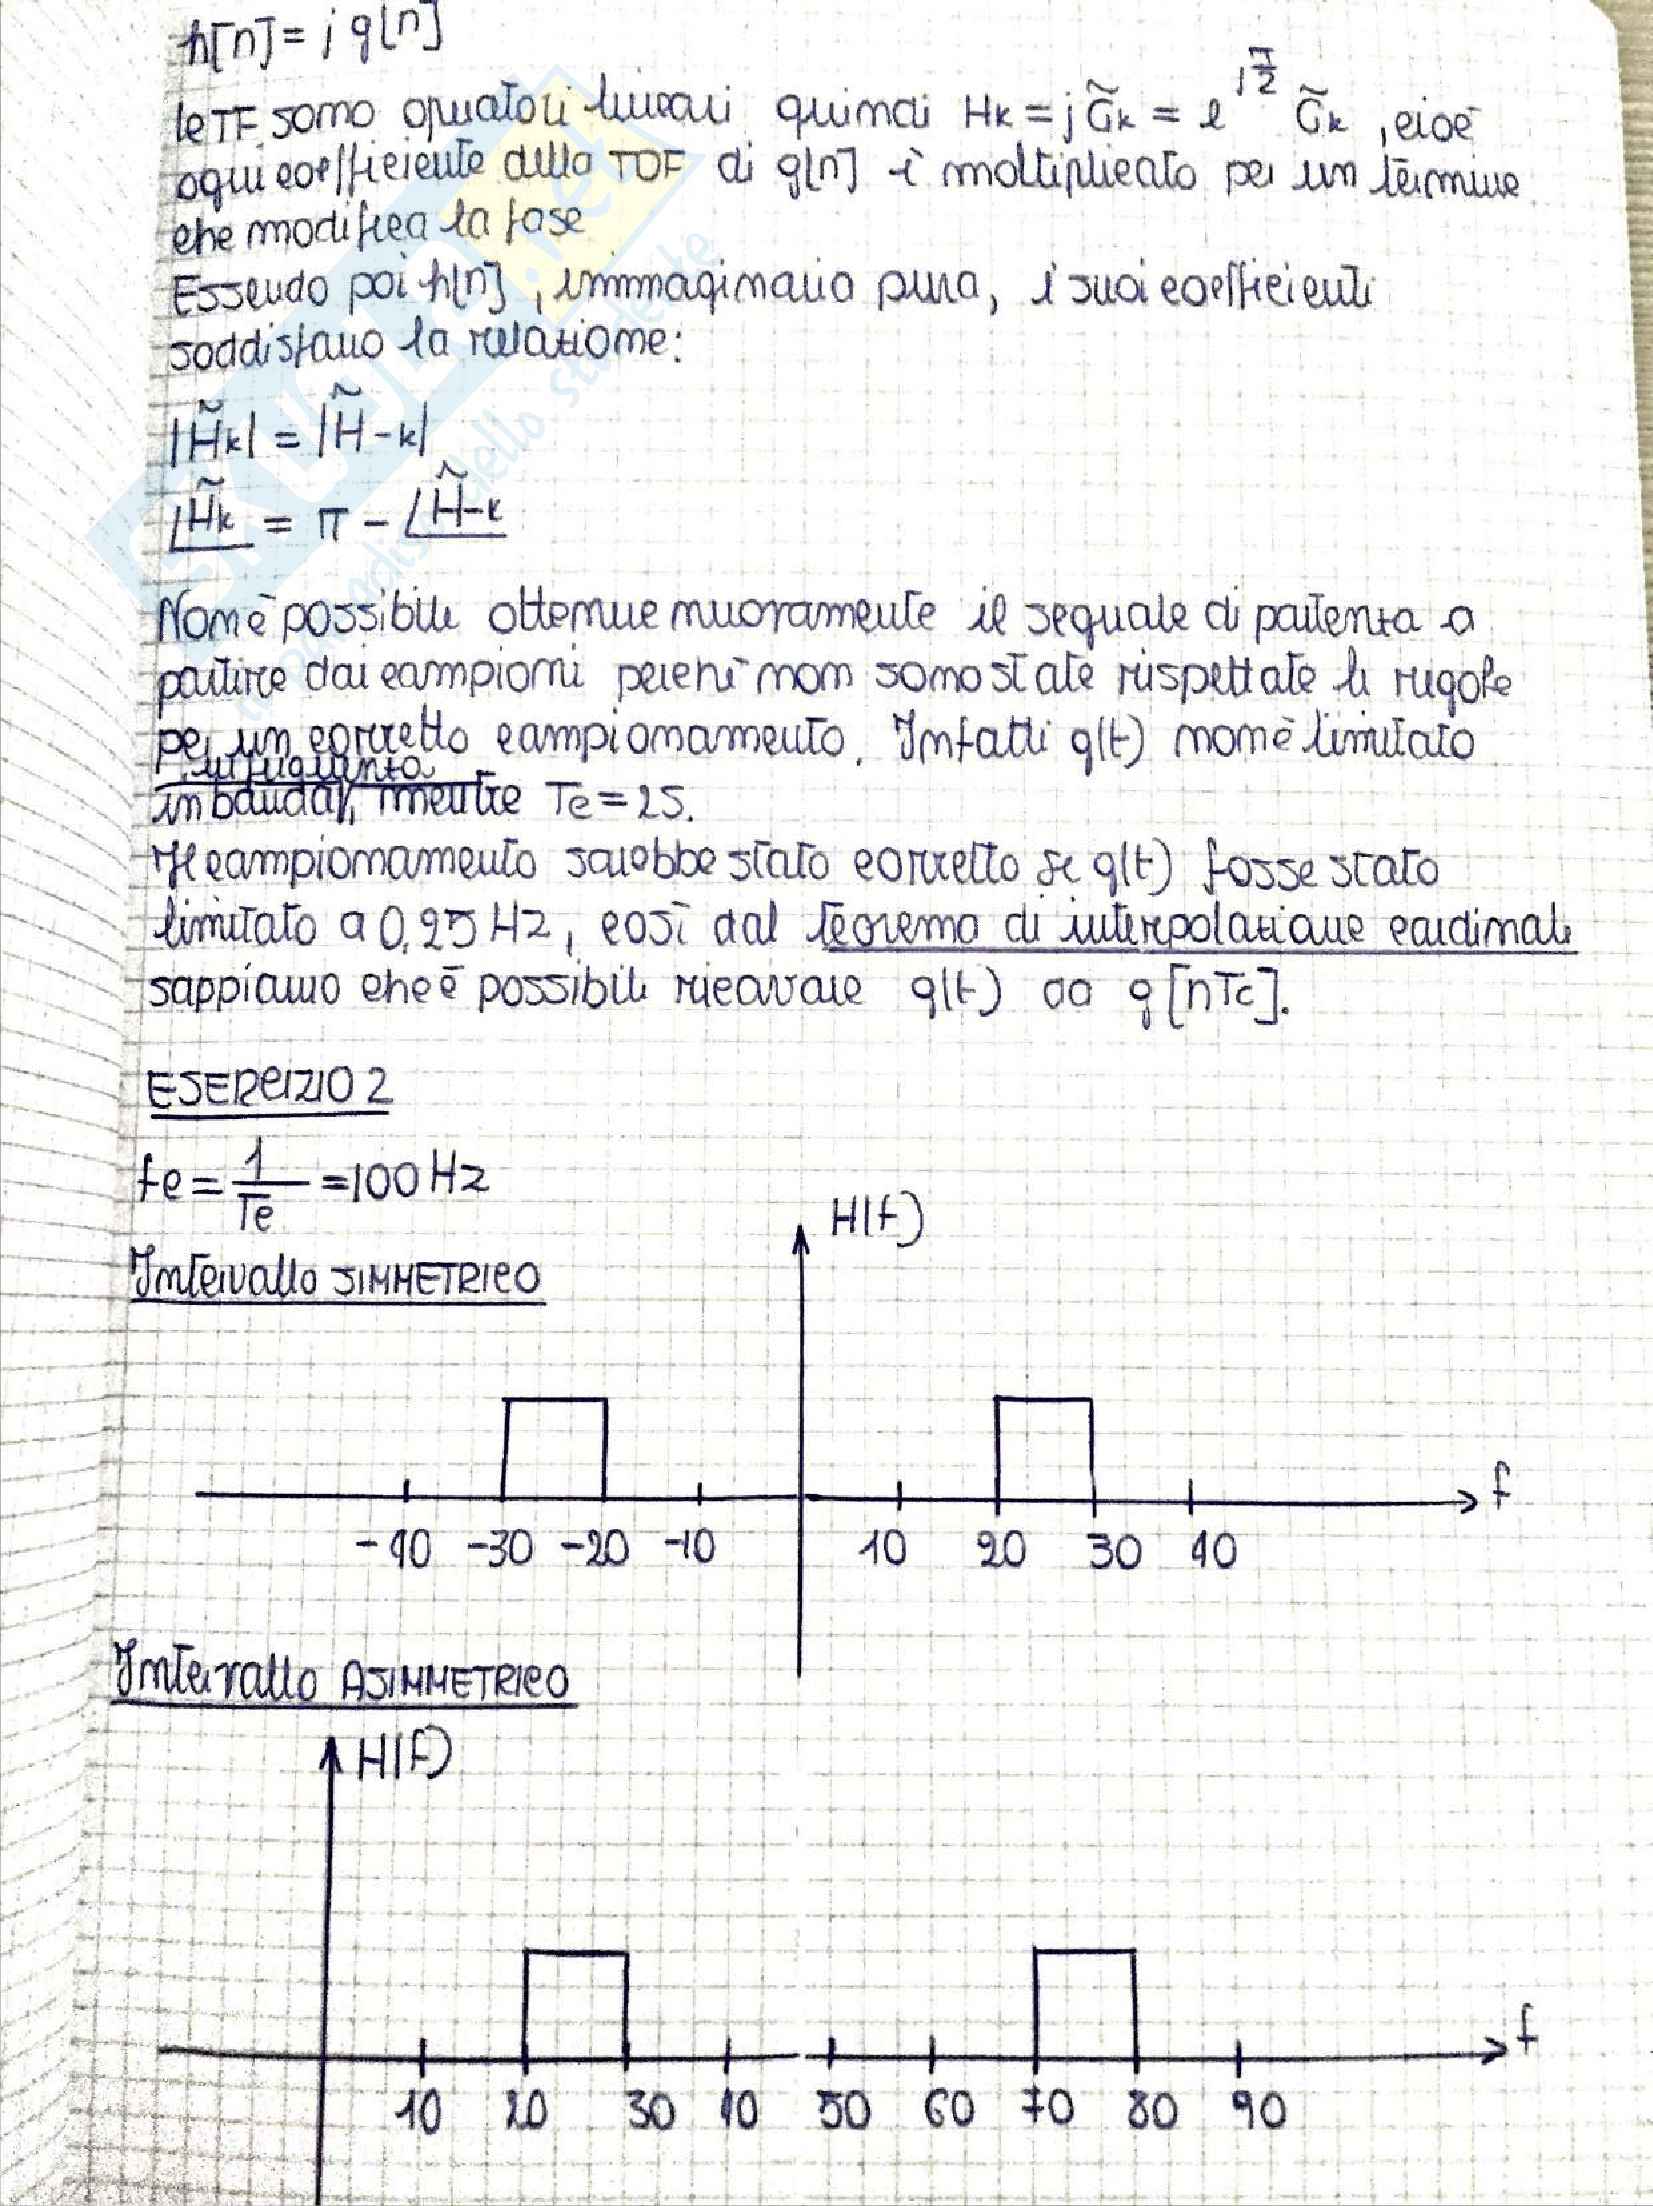 h[n] = j g[n]
le TF sono operatori lineari quindi Hk = j G̃k = e^(jπ/2) G̃k , cioè
ogni coefficiente della TDF di g[n] è moltiplicato per un termine
che modifica la fase
Essendo poi h[n], immmaginaria pura, i suoi coefficienti
soddisfano la relazione:
|H̃k| = |H̃-k|
∠H̃k = π - ∠H̃-k
Non è possibile ottenere nuovamente il segnale di partenza a
partire dai campioni perché non sono state rispettate le regole
per un corretto campionamento. Infatti g(t) non è limitato
in frequenza
in banda, mentre Tc = 2s.
Il campionamento sarebbe stato corretto se g(t) fosse stato
limitato a 0,25 Hz, così dal teorema di interpolazione cardinale
sappiamo che è possibile ricavare g(t) da g[nTc].
ESERCIZIO 2
fc = 1/Tc = 100 Hz
H(f)
Intervallo SIMMETRICO
f
-40 -30 -20 -10 10 20 30 40
Intervallo ASIMMETRICO
H(f)
f
10 20 30 40 50 60 70 80 90
SKUOLA.net
il paradiso dello studente